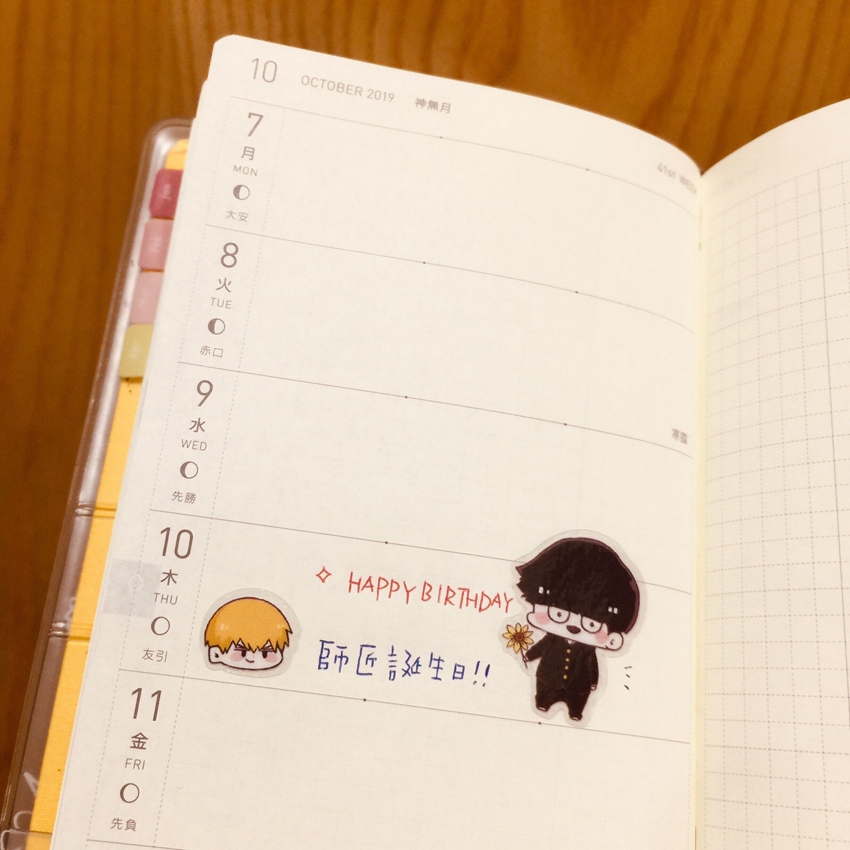 10 OCTOBER 2019 神無月
41st WEEK
7
月
MON
大安
8
火
TUE
赤口
9
水
WED
先勝
寒露
10
木
THU
友引
HAPPY BIRTHDAY
師匠誕生日!!
11
金
FRI
先負